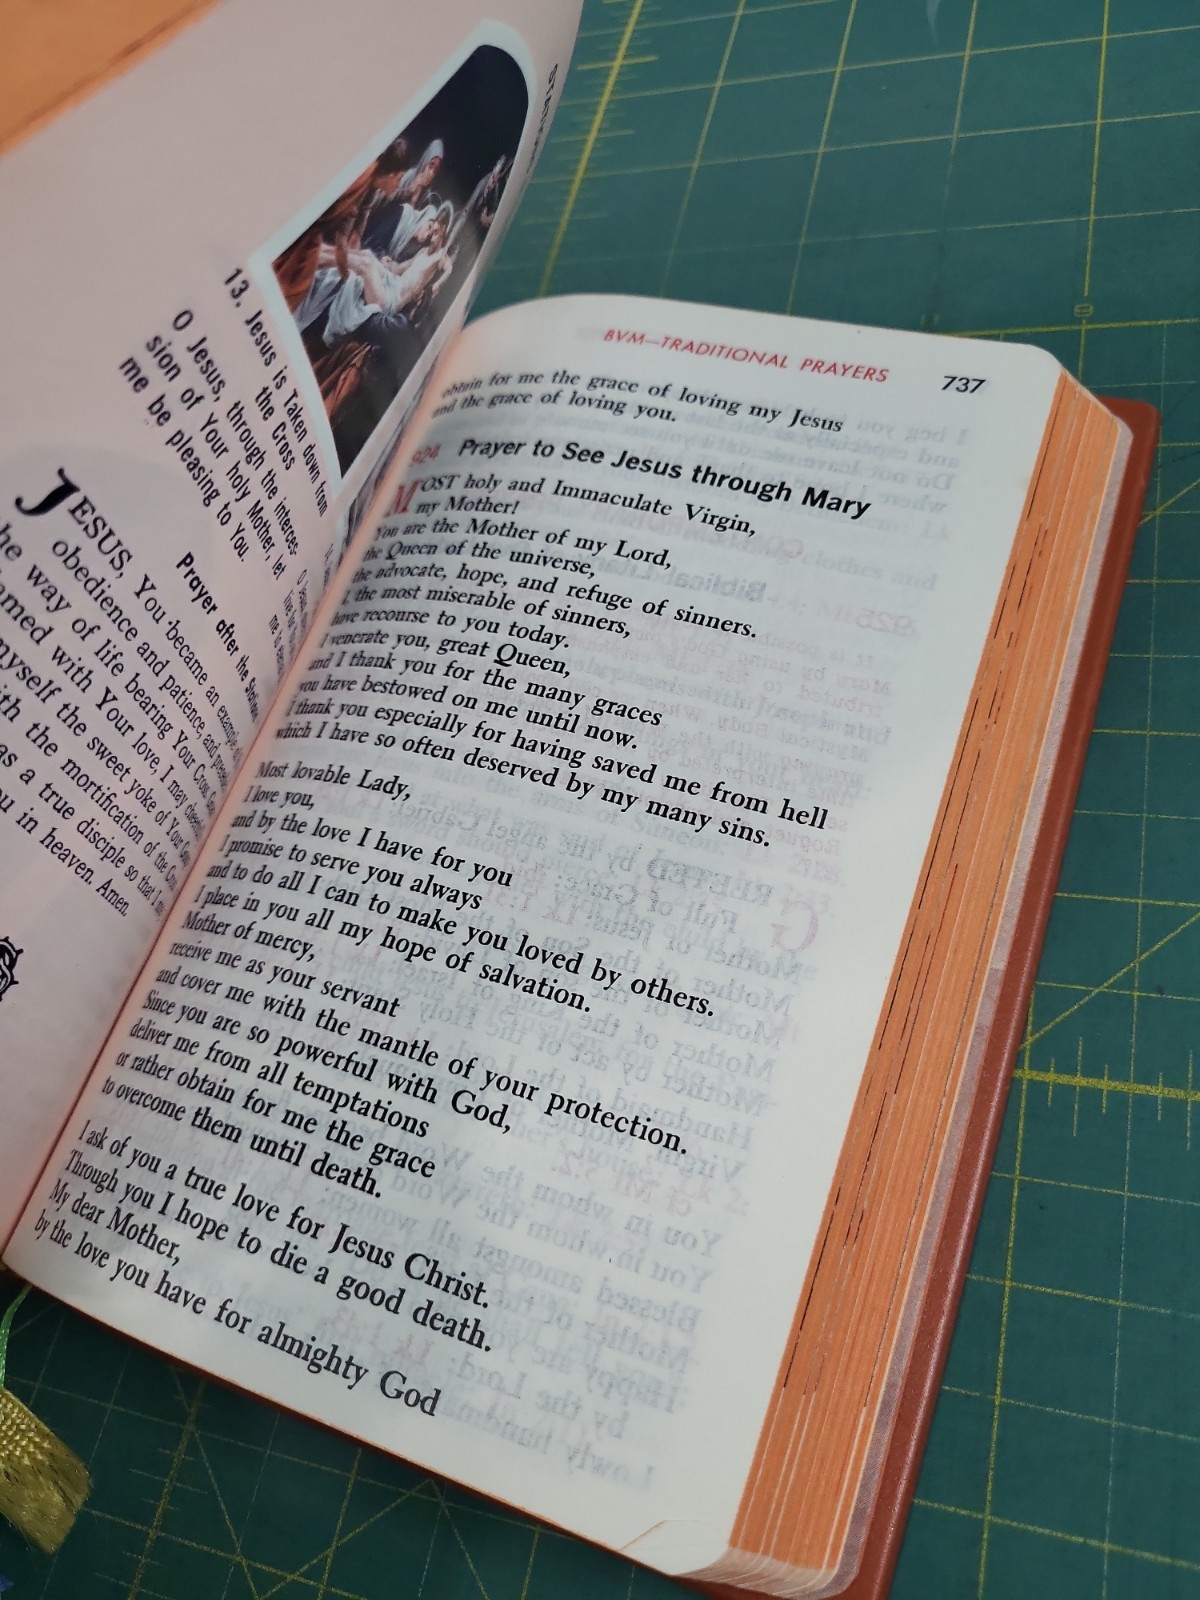 13. Jesus is Taken down from
the Cross
O Jesus, through the interces-
sion of Your holy Mother, let
me be pleasing to You.
Prayer after the Stations
JESUS, You became an example of
obedience and patience, and
the way of life bearing Your Cross
with Your love, I may
myself the sweet yoke of Your
the mortification of the Cross
as a true disciple so that I
in heaven. Amen.
BVM—TRADITIONAL PRAYERS 737
obtain for me the grace of loving my Jesus
and the grace of loving you.
924 Prayer to See Jesus through Mary
MOST holy and Immaculate Virgin,
my Mother!
You are the Mother of my Lord,
the Queen of the universe,
the advocate, hope, and refuge of sinners.
I, the most miserable of sinners,
have recourse to you today.
I venerate you, great Queen,
and I thank you for the many graces
you have bestowed on me until now.
I thank you especially for having saved me from hell
which I have so often deserved by my many sins.
Most lovable Lady,
I love you,
and by the love I have for you
I promise to serve you always
and to do all I can to make you loved by others.
I place in you all my hope of salvation.
Mother of mercy,
receive me as your servant
and cover me with the mantle of your protection.
Since you are so powerful with God,
deliver me from all temptations
or rather obtain for me the grace
to overcome them until death.
I ask of you a true love for Jesus Christ.
Through you I hope to die a good death.
My dear Mother,
by the love you have for almighty God